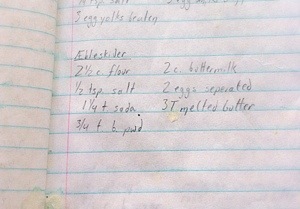 tsp. salt
3 egg yolks beaten
Æbleskiver
2 1/2 c. flour 2 c. buttermilk
1/2 tsp. salt 2 eggs seperated
1 1/4 t soda 3 T melted butter
3/4 t b. pwd